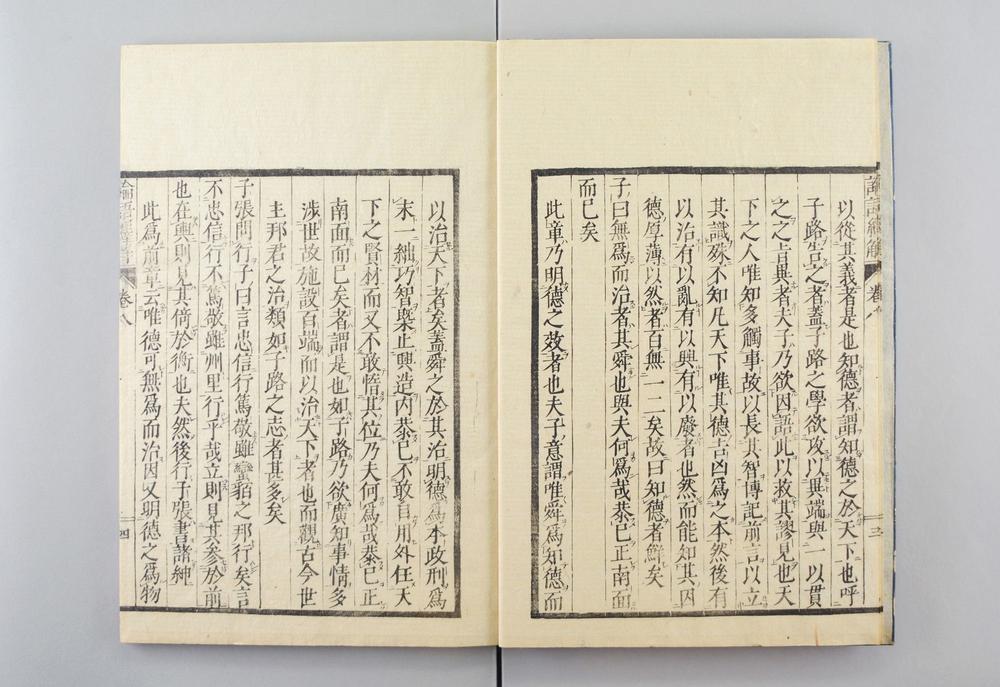 以從其義者是也知德者謂知德之於天下也呼
子路告之者蓋子路之學欲攻以異端與一以貫
之之旨異者夫子乃欲因語此以救其謬見也天
下之人唯知多觸事故以長其智博記前言以立
其識殊不知凡天下唯其德吉凶爲之本然後有
以治有以亂有以興有以廢者也然而能知其因
德厚薄以然者百無一二矣故曰知德者鮮矣
子曰無爲而治者其舜也與夫何爲哉恭己正南面
而已矣
此章乃明德之效者也夫子意謂唯舜爲知德而
三
以治天下者矣蓋舜之於其治明德爲本政刑爲
末一絀巧智槩止興造内恭己不敢自用外任天
下之賢材而又不敢惰其位乃夫何爲哉恭己正
南面而已矣者謂是也如子路乃欲廣知事情多
涉世故施設百端而以治天下者也而觀古今世
主邦君之治類如子路之志者甚多矣
子張問行子曰言忠信行篤敬雖蠻貊之邦行矣言
不忠信行不篤敬雖州里行乎哉立則見其參於前
也在輿則見其倚於衡也夫然後行子張書諸紳
此爲前章云唯德可無爲而治因又明德之爲物
卷八
四